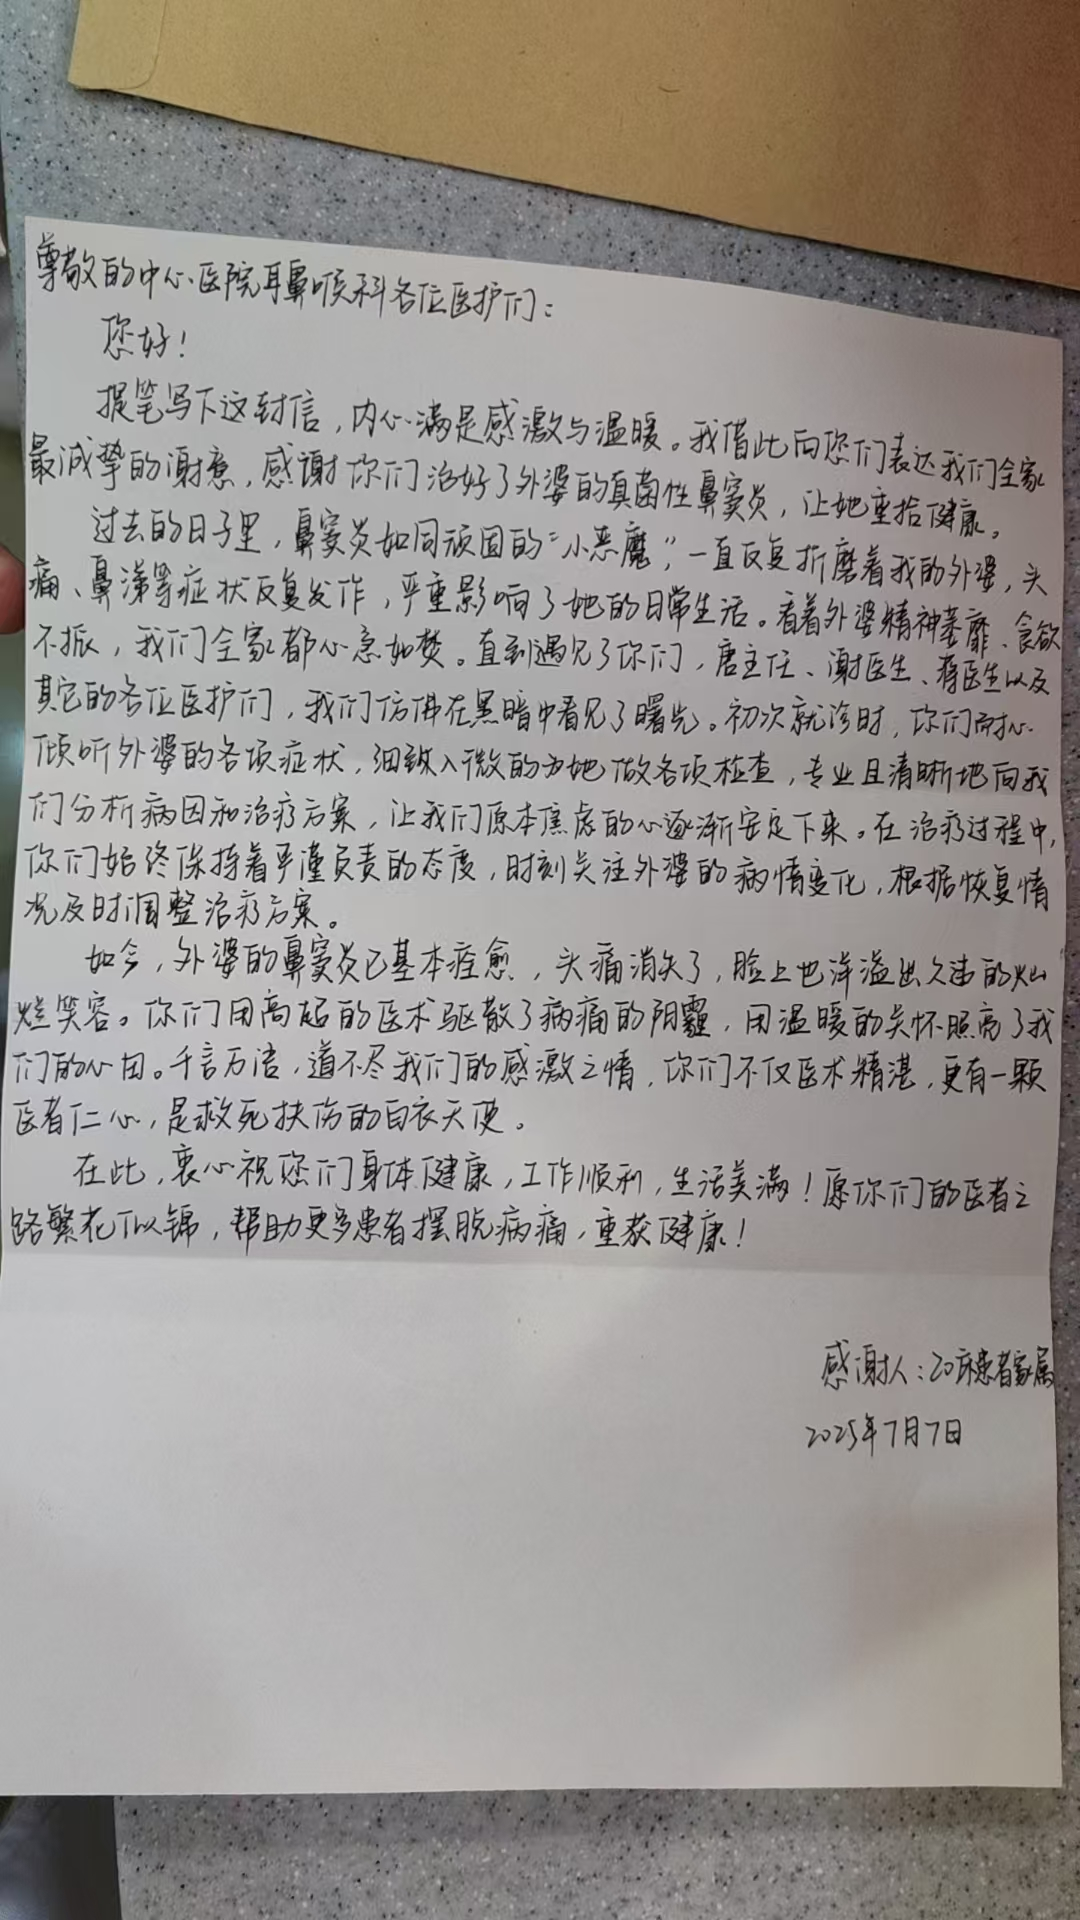 尊敬的中心医院耳鼻喉科各位医护们：
您好！
提笔写下这封信，内心满是感激与温暖。我借此向您们表达我们全家
最诚挚的谢意，感谢你们治好了外婆的真菌性鼻窦炎，让她重拾健康。
过去的日子里，鼻窦炎如同顽固的“小恶魔”，一直反复折磨着我的外婆，头
痛、鼻涕等症状反复发作，严重影响了她的日常生活。看着外婆精神萎靡、食欲
不振，我们全家都心急如焚。直到遇见了你们，唐主任、谢医生、蒋医生以及
其它的各位医护们，我们仿佛在黑暗中看见了曙光。初次就诊时，你们耐心
倾听外婆的各项症状，细致入微的为她做各项检查，专业且清晰地向我
们分析病因和治疗方案，让我们原本焦虑的心逐渐安定下来。在治疗过程中，
你们始终保持着严谨负责的态度，时刻关注外婆的病情变化，根据恢复情
况及时调整治疗方案。
如今，外婆的鼻窦炎已基本痊愈，头痛消失了，脸上也洋溢出久违的灿
烂笑容。你们用高超的医术驱散了病痛的阴霾，用温暖的关怀照亮了我
们的心田。千言万语，道不尽我们的感激之情，你们不仅医术精湛，更有一颗
医者仁心，是救死扶伤的白衣天使。
在此，衷心祝您们身体健康，工作顺利，生活美满！愿你们的医者之
路繁花似锦，帮助更多患者摆脱病痛，重获健康！
感谢人：20床患者家属
2025年7月7日